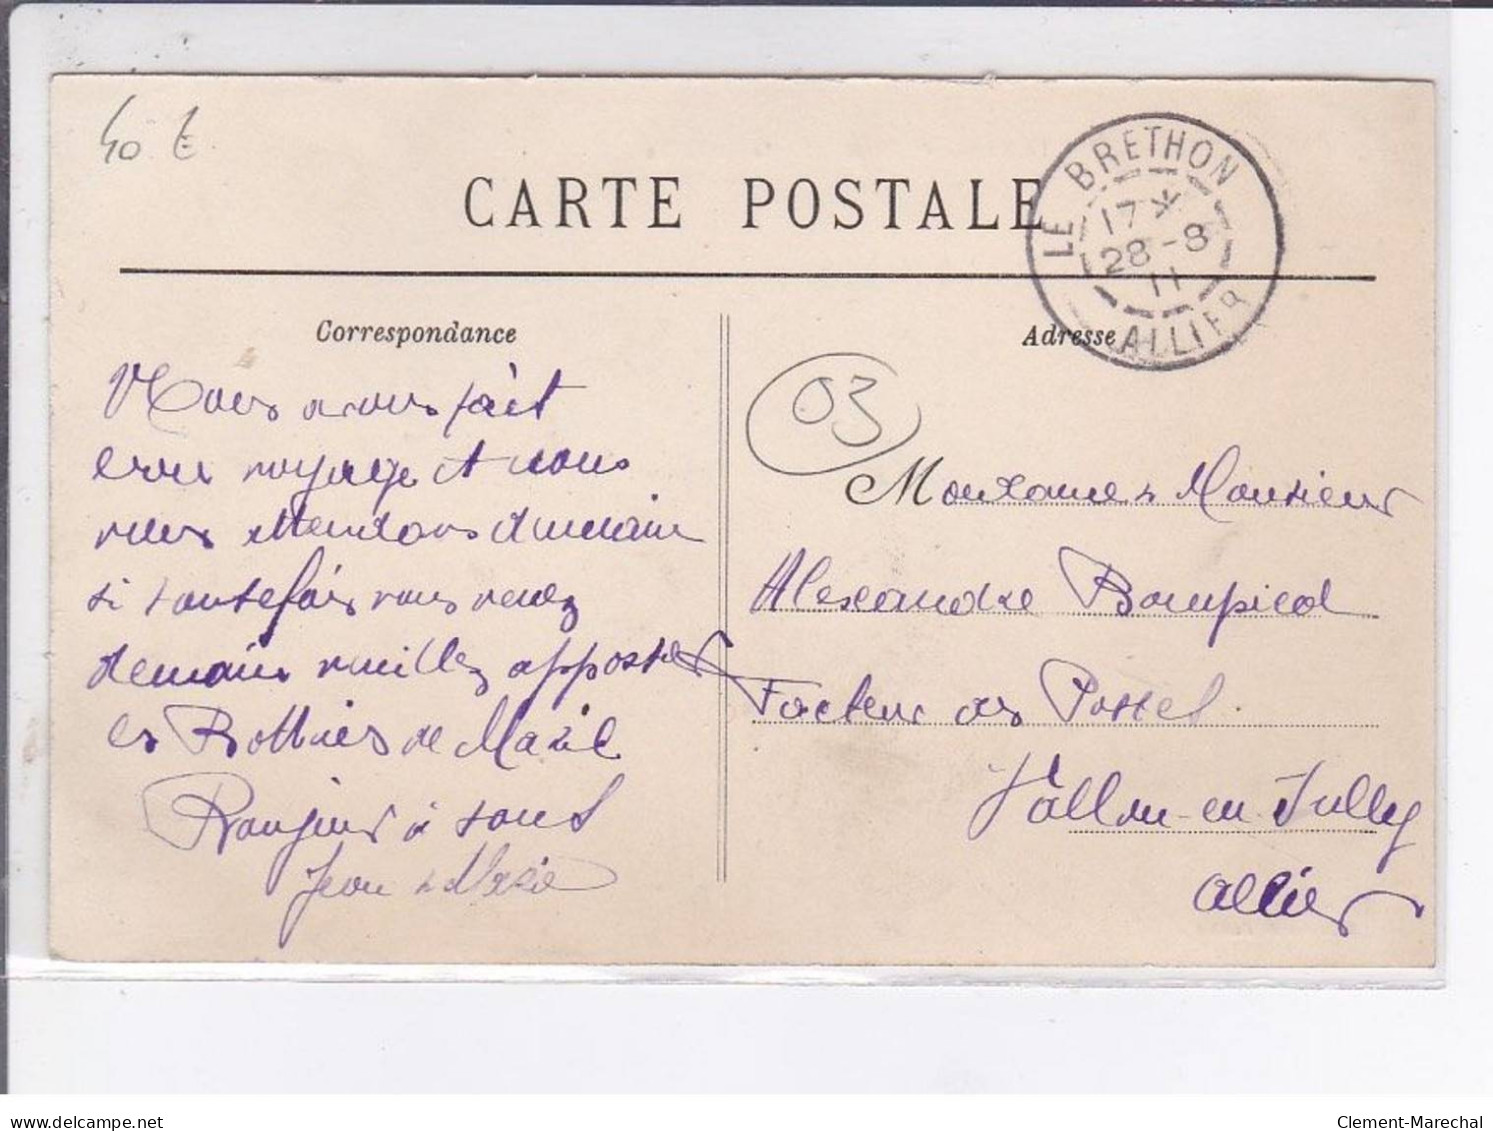 40 €
CARTE POSTALE
LE BRETHON
17*
28-8
11
ALLIER
Correspondance
Adresse
03
Nous avons fait
bon voyage et nous
vous attendons demain
si toutefois vous venez
demain veuillez apporter
les Bottines de Marie
Bonjour à tous
Jean & Marie
Monsieur
Alexandre Bompied
Facteur des Postes
Vallon-en-Sully
Allier
delcampe.net
Clement-Marechal